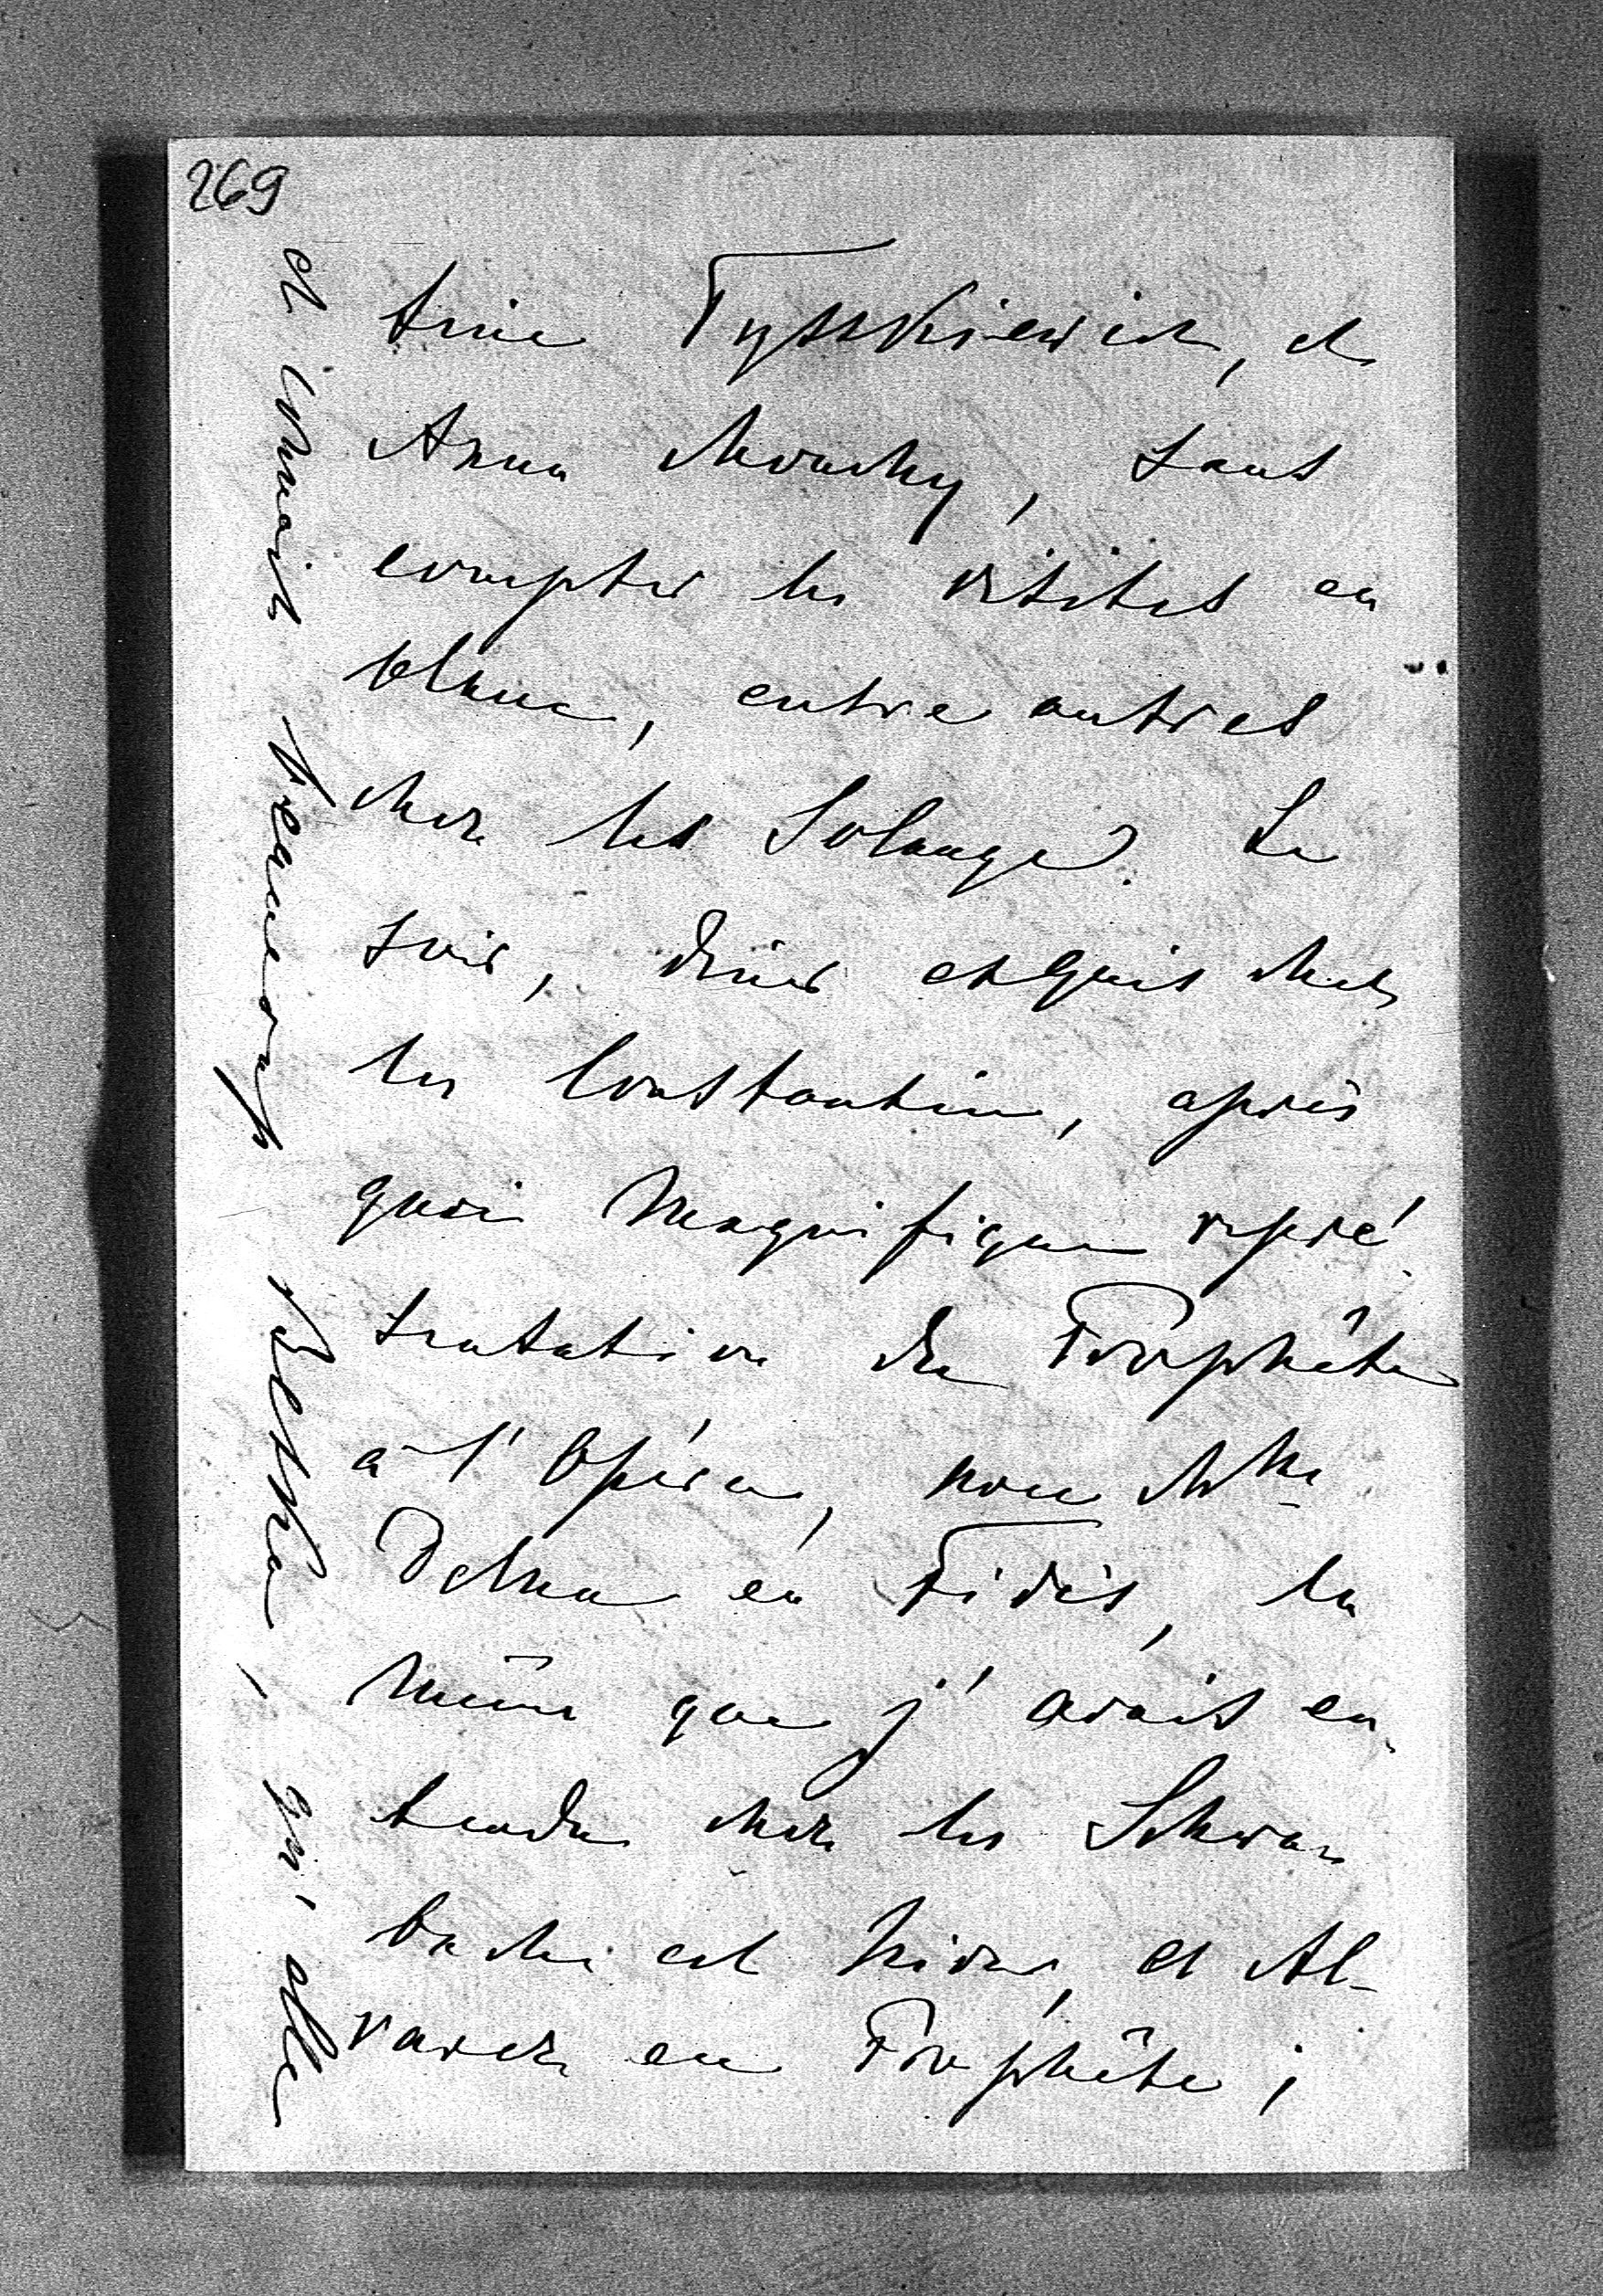 269
tine Tyszkiewicz, et
Anna Mouchy, sans
compter les visites en
blanc, entre autres
chez les Solange. Le
soir, dîner exquis chez
les Constantin, après
quoi magnifique repré-
sentation du Prophète
à l'Opéra, avec Mlle
Delna en Fidès, la
même que j'avais en-
tendue chez les Schwar
bach cet hiver, et Al-
varez en Prophète ;
et connait beaucoup Betka, qu'elle